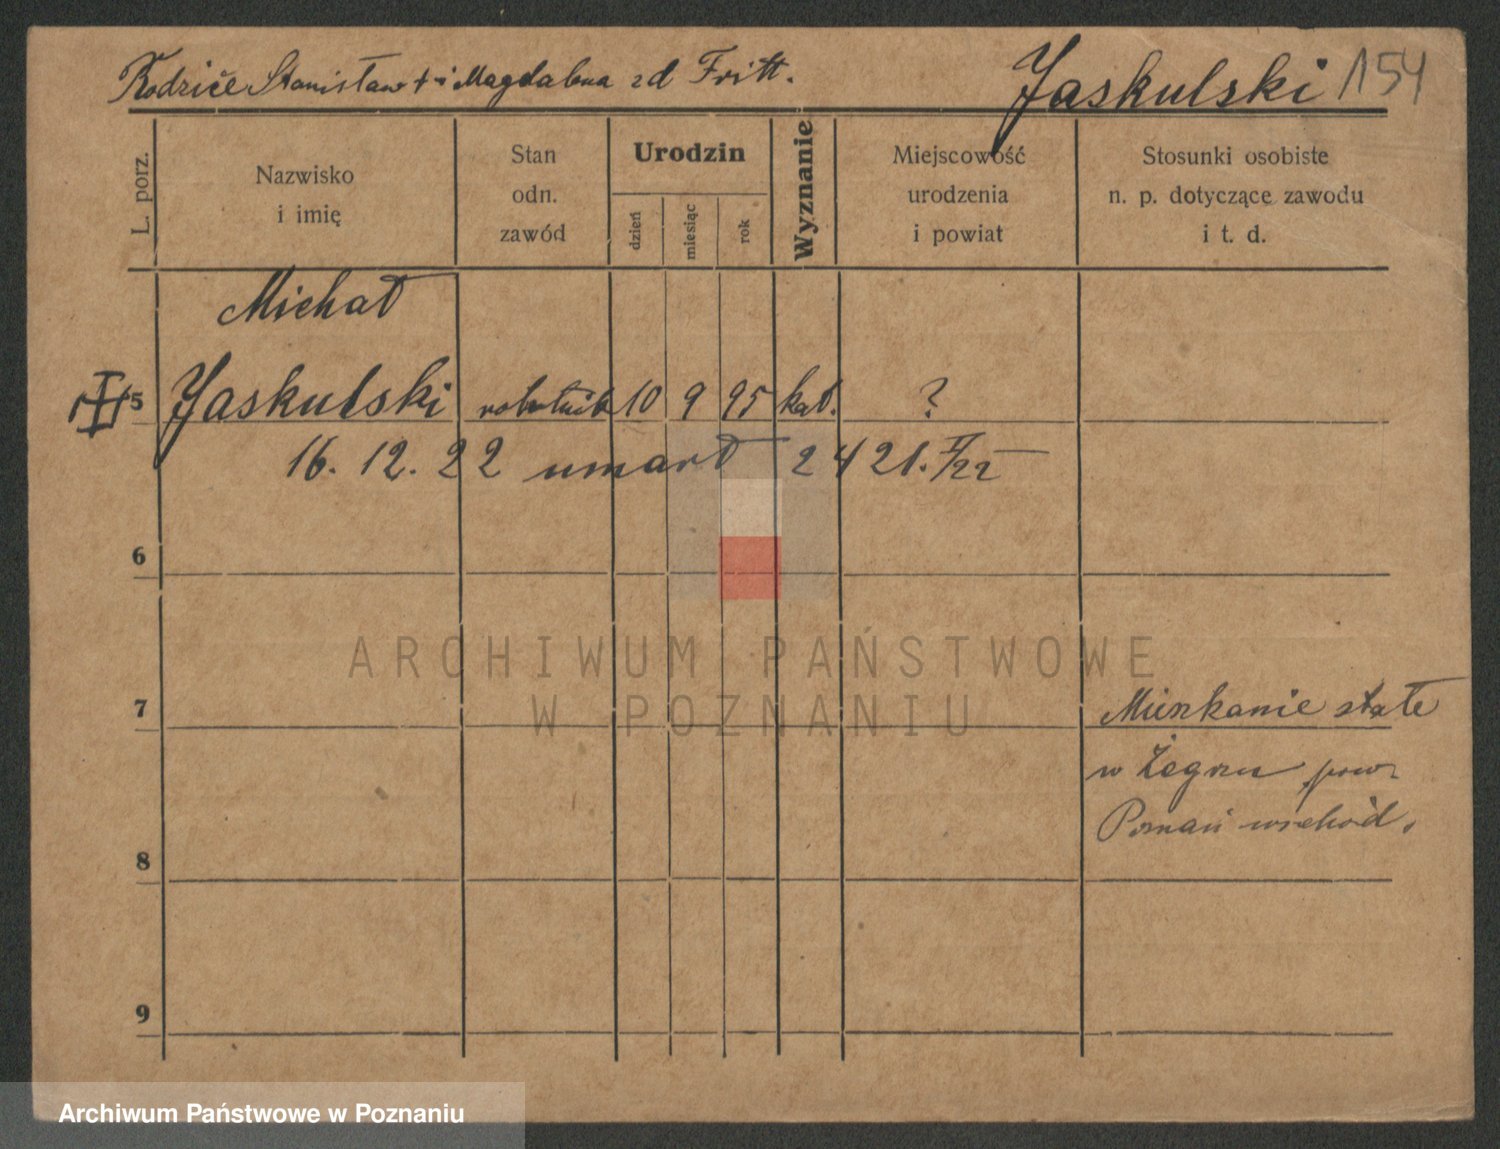 Rodzice Stanisław + i Magdalena zd Fritt.
Jaskulski 154
L. porz.
Nazwisko
i imię
Stan
odn.
zawód
Urodzin
dzień
miesiąc
rok
Wyznanie
Miejscowość
urodzenia
i powiat
Stosunki osobiste
n. p. dotyczące zawodu
i t. d.
Michał
5 Jaskulski robotnik 10 9 95 kat. ?
16. 12. 22 umarł 2421. II/22
6
7
Mieszkanie stałe
w Żegrzu pow.
Poznań wschód.
8
9
ARCHIWUM PAŃSTWOWE
W POZNANIU
Archiwum Państwowe w Poznaniu